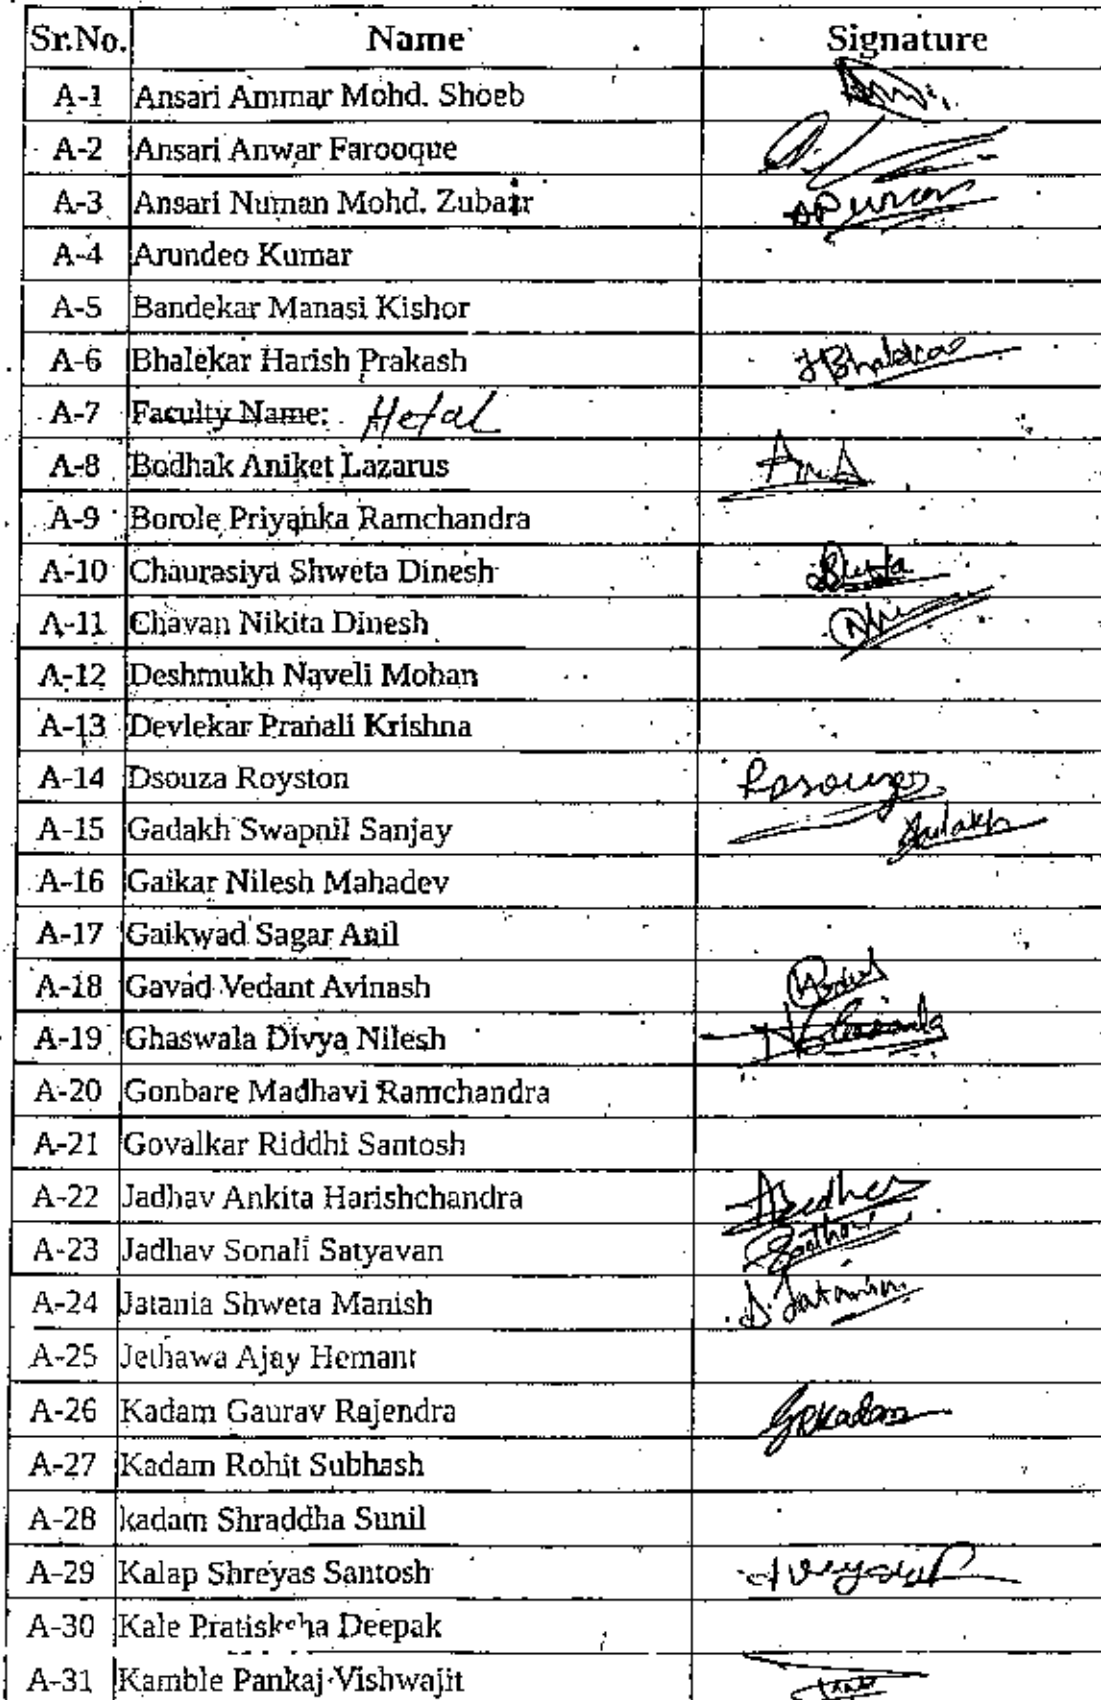 Sr.No. Name Signature
A-1 Ansari Ammar Mohd. Shoeb
A-2 Ansari Anwar Farooque
A-3 Ansari Numan Mohd. Zubair
A-4 Arundeo Kumar
A-5 Bandekar Manasi Kishor
A-6 Bhalekar Harish Prakash HBhalekar
A-7 Faculty Name: Hetal
A-8 Bodhak Aniket Lazarus
A-9 Borole Priyanka Ramchandra
A-10 Chaurasiya Shweta Dinesh
A-11 Chavan Nikita Dinesh
A-12 Deshmukh Naveli Mohan
A-13 Devlekar Pranali Krishna
A-14 Dsouza Royston
A-15 Gadakh Swapnil Sanjay
A-16 Gaikar Nilesh Mahadev
A-17 Gaikwad Sagar Anil
A-18 Gavad Vedant Avinash
A-19 Ghaswala Divya Nilesh
A-20 Gonbare Madhavi Ramchandra
A-21 Govalkar Riddhi Santosh
A-22 Jadhav Ankita Harishchandra
A-23 Jadhav Sonali Satyavan
A-24 Jatania Shweta Manish
A-25 Jethawa Ajay Hemant
A-26 Kadam Gaurav Rajendra GRKadam
A-27 Kadam Rohit Subhash
A-28 kadam Shraddha Sunil
A-29 Kalap Shreyas Santosh
A-30 Kale Pratiskcha Deepak
A-31 Kamble Pankaj Vishwajit